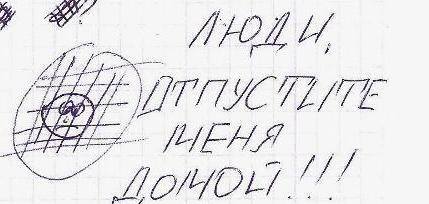 ЛЮДИ,
ОТПУСТИТЕ
МЕНЯ
ДОМОЙ!!!